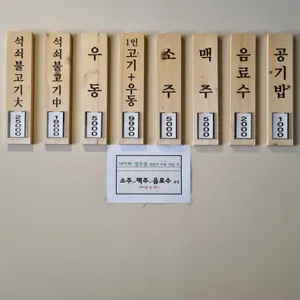 석쇠불고기大
25000
석쇠불고기中
18000
우동
5000
1인
고기+우동
9900
소주
5000
맥주
5000
음료수
2000
공기밥
1000
소주 맥주 음료수